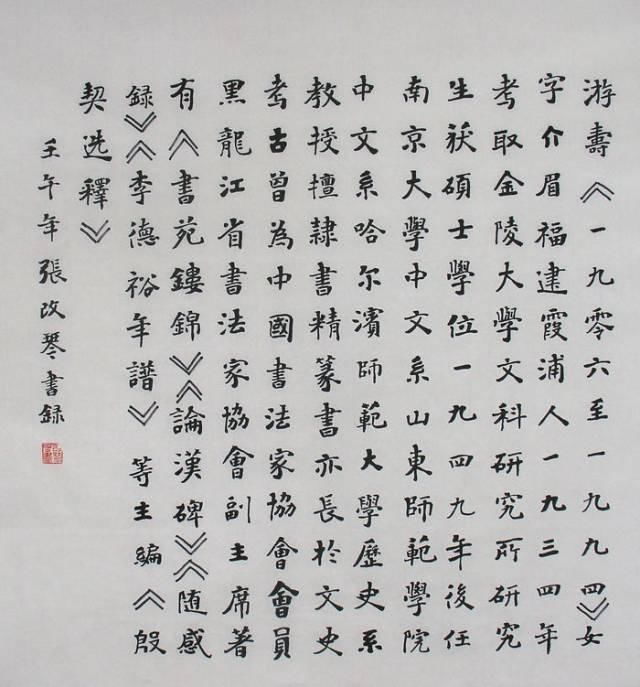 游壽《一九零六至一九九四》女
字介眉福建霞浦人一九三四年
考取金陵大學文科研究所研究
生获碩士學位一九四九年後任
南京大學中文系山東師範學院
中文系哈尔濱師範大學歷史系
教授擅隸書精篆書亦長於文史
考古曾為中國書法家協會會員
黑龍江省書法家協會副主席著
有《書苑鏤錦》《論漢碑》《随感
録》《李德裕年譜》等主編《殷
契选釋》
壬午年張改琴書録